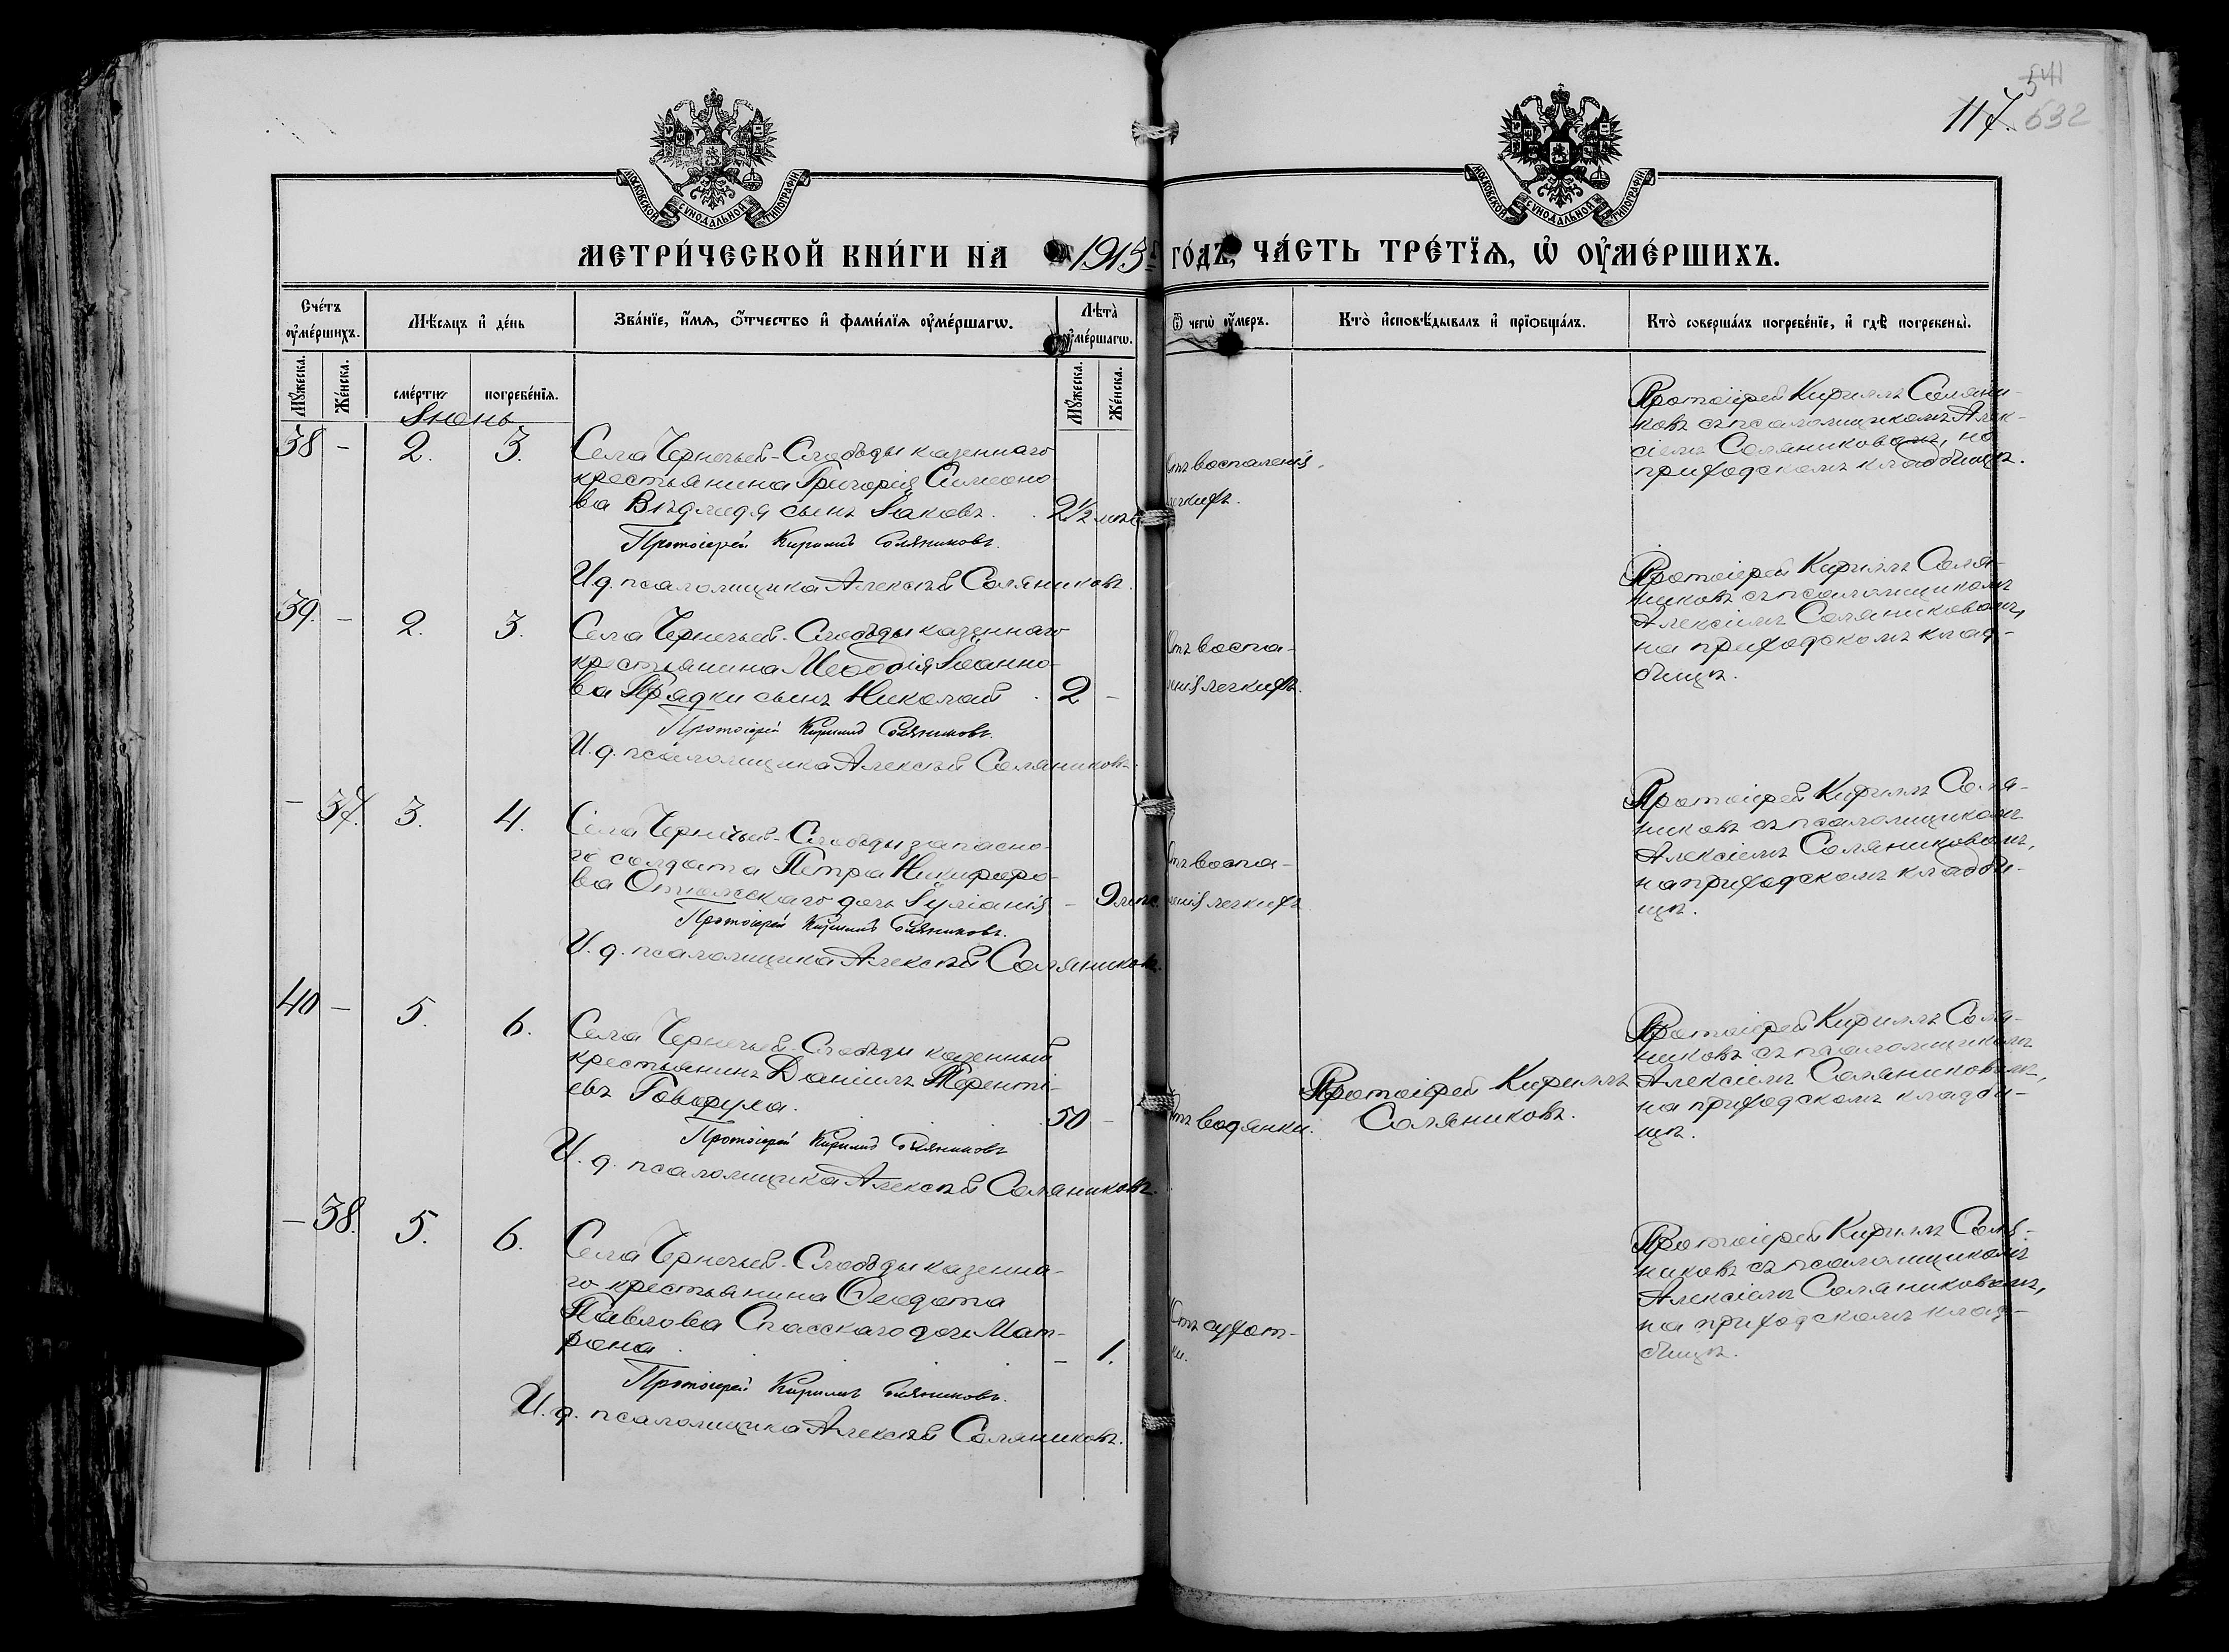 541
117. 632
МОСКОВСКОЙ СѴНОДАЛЬНОЙ ТИПОГРАФІИ
МОСКОВСКОЙ СѴНОДАЛЬНОЙ ТИПОГРАФІИ
МЕТРИ́ЧЕСКОЙ КНИ́ГИ НА 1915 ГО́ДЪ, ЧА́СТЬ ТРЕ́ТЇѦ, Ѡ҆ ОУ҆МЕ́РШИХЪ.
Сче́тъ оу҆ме́ршихъ.
Мѣ́сяцъ и҆ де́нь
Зва́нїе, и҆́мѧ, ѻ҆́тчество и҆ фами́лїѧ оу҆ме́ршагѡ.
Лѣ́та̀ оу҆ме́ршагѡ.
Ѿ чегѡ̀ оу҆́меръ.
Кто̀ и҆сповѣ́дывалъ и҆ прїѻбща́лъ.
Кто̀ соверша́лъ погребе́нїе, и҆ гдѣ̀ погребены̀.
Мꙋ́жеска.
Же́нска.
сме́рти
погребе́нїѧ.
Мꙋ́жеска.
Же́нска.
Іюнь
38 - 2. 3.
Села Чернечьей-Слободы казеннаго
крестьянина Григорія Симеоно-
ва сынъ Іаковъ. 2½ мѣс.
Протоіерей Кириллъ Соляниковъ.
И. д. псаломщика Алексѣй Соляниковъ.
Отъ воспаленія
легкихъ.
Протоіерей Кириллъ Соляни-
ковъ съ псаломщикомъ Алек-
сіемъ Соляниковымъ, на
приходскомъ кладбищѣ.
39. - 2. 3.
Села Чернечьей-Слободы казеннаго
крестьянина Меѳодія Іоанно-
ва Прядки сынъ Николай 2 -
Протоіерей Кириллъ Соляниковъ.
И. д. псаломщика Алексѣй Соляниковъ.
Отъ воспа-
ленія легкихъ.
Протоіерей Кириллъ Соля-
никовъ съ псаломщикомъ
Алексіемъ Соляниковымъ,
на приходскомъ клад-
бищѣ.
- 37. 3. 4.
Села Чернечьей-Слободы запасно-
го солдата Петра Никифоро-
ва дочь Іуліанія - 9 мѣс.
Протоіерей Кириллъ Соляниковъ.
И. д. псаломщика Алексѣй Соляниковъ.
Отъ воспа-
ленія легкихъ
Протоіерей Кириллъ Соля-
никовъ съ псаломщикомъ
Алексіемъ Соляниковымъ,
на приходскомъ кладби-
щѣ.
40 - 5. 6.
Села Чернечьей-Слободы казенный
крестьянинъ Даніилъ Терентi-
евъ Говоруха. 50 -
Протоіерей Кириллъ Соляниковъ
И. д. псаломщика Алексѣй Соляниковъ.
Отъ водянки.
Протоіерей Кириллъ
Соляниковъ.
Протоіерей Кириллъ Соля-
никовъ съ псаломщикомъ
Алексіемъ Соляниковымъ,
на приходскомъ кладби-
щѣ.
- 38. 5. 6.
Села Чернечьей-Слободы казенна-
го крестьянина Ѳеодота
Павлова Спасскаго дочь Мат-
рона. - 1.
Протоіерей Кириллъ Соляниковъ.
И. д. псаломщика Алексѣй Соляниковъ.
Отъ сухот-
ки.
Протоіерей Кириллъ Соля-
никовъ съ псаломщикомъ
Алексіемъ Соляниковымъ,
на приходскомъ клад-
бищѣ.